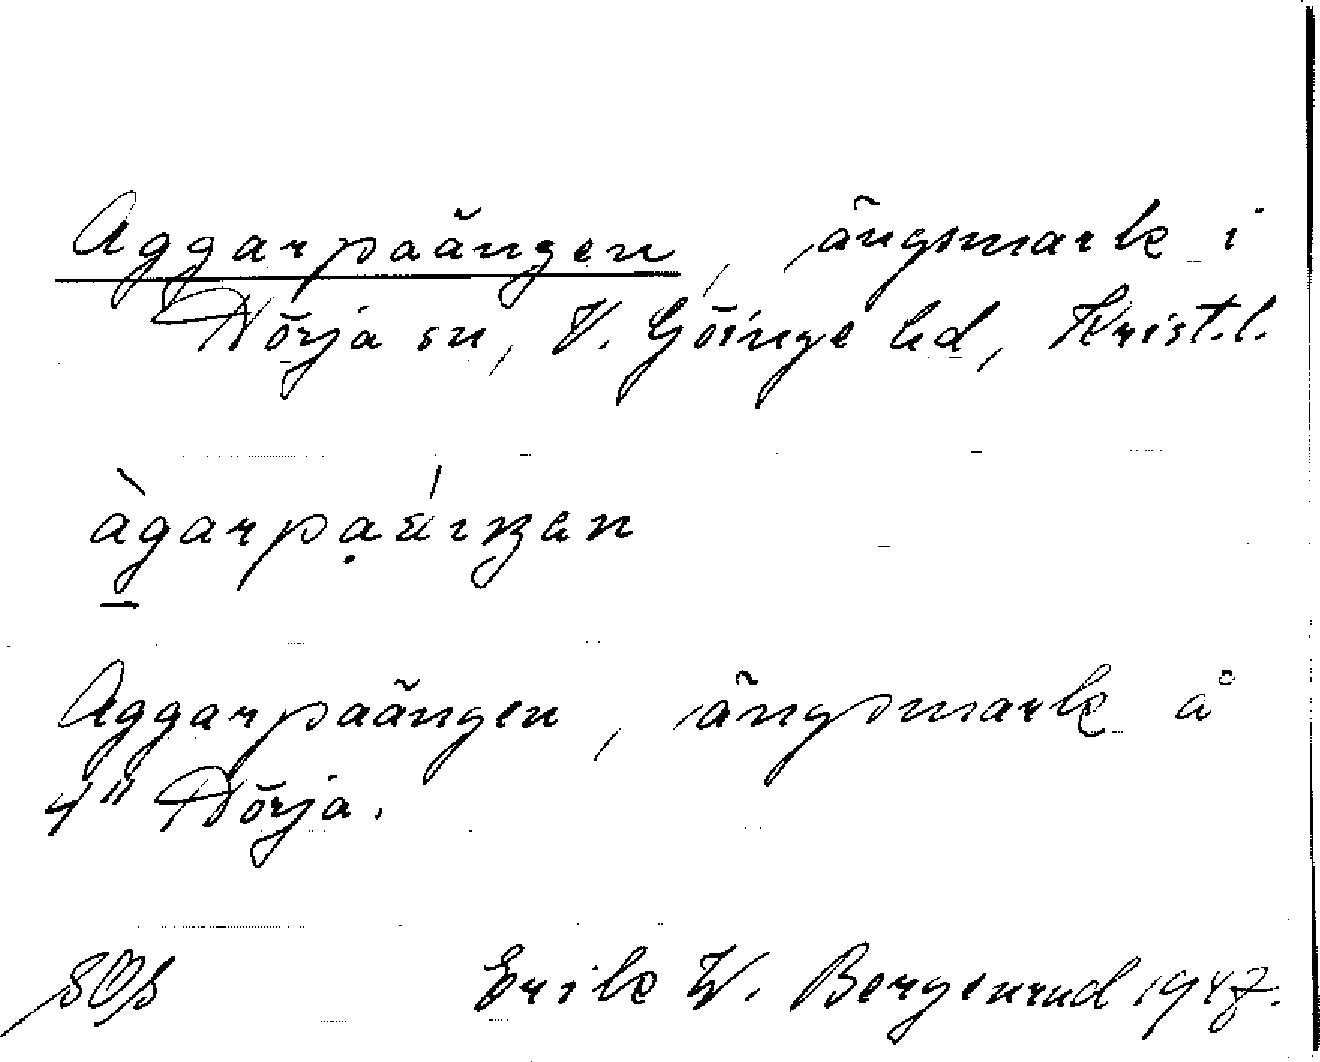 Aggarpaängen, ängsmark i
Nörja sn, V. Göinge hd, Krist.l.
àgarpạáıŋan
Aggarpaängen, ängsmark å
4" Nörja.
Erik W. Bergenrud 1947.